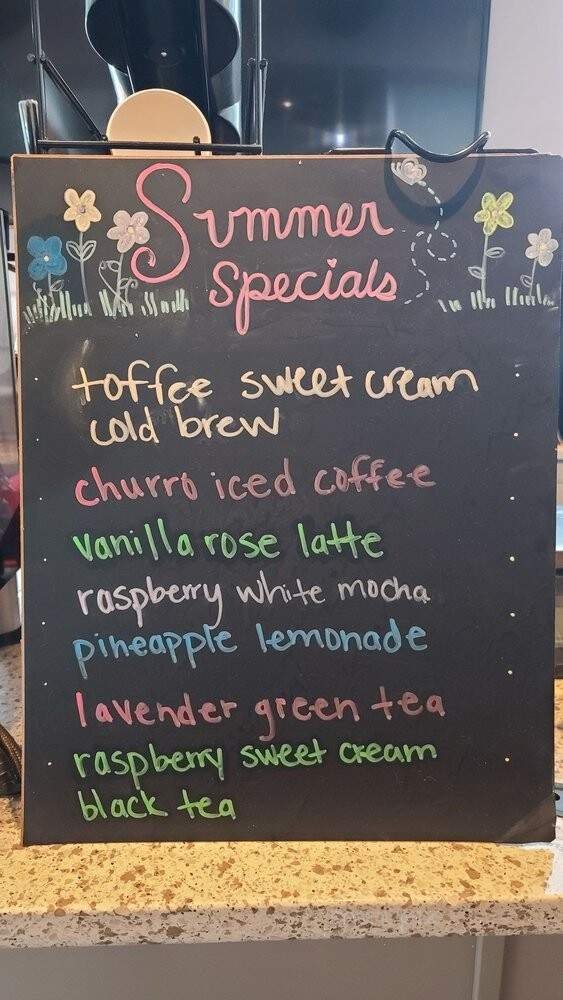 Summer
Specials
toffee sweet cream
cold brew
churro iced coffee
vanilla rose latte
raspberry white mocha
pineapple lemonade
lavender green tea
raspberry sweet cream
black tea